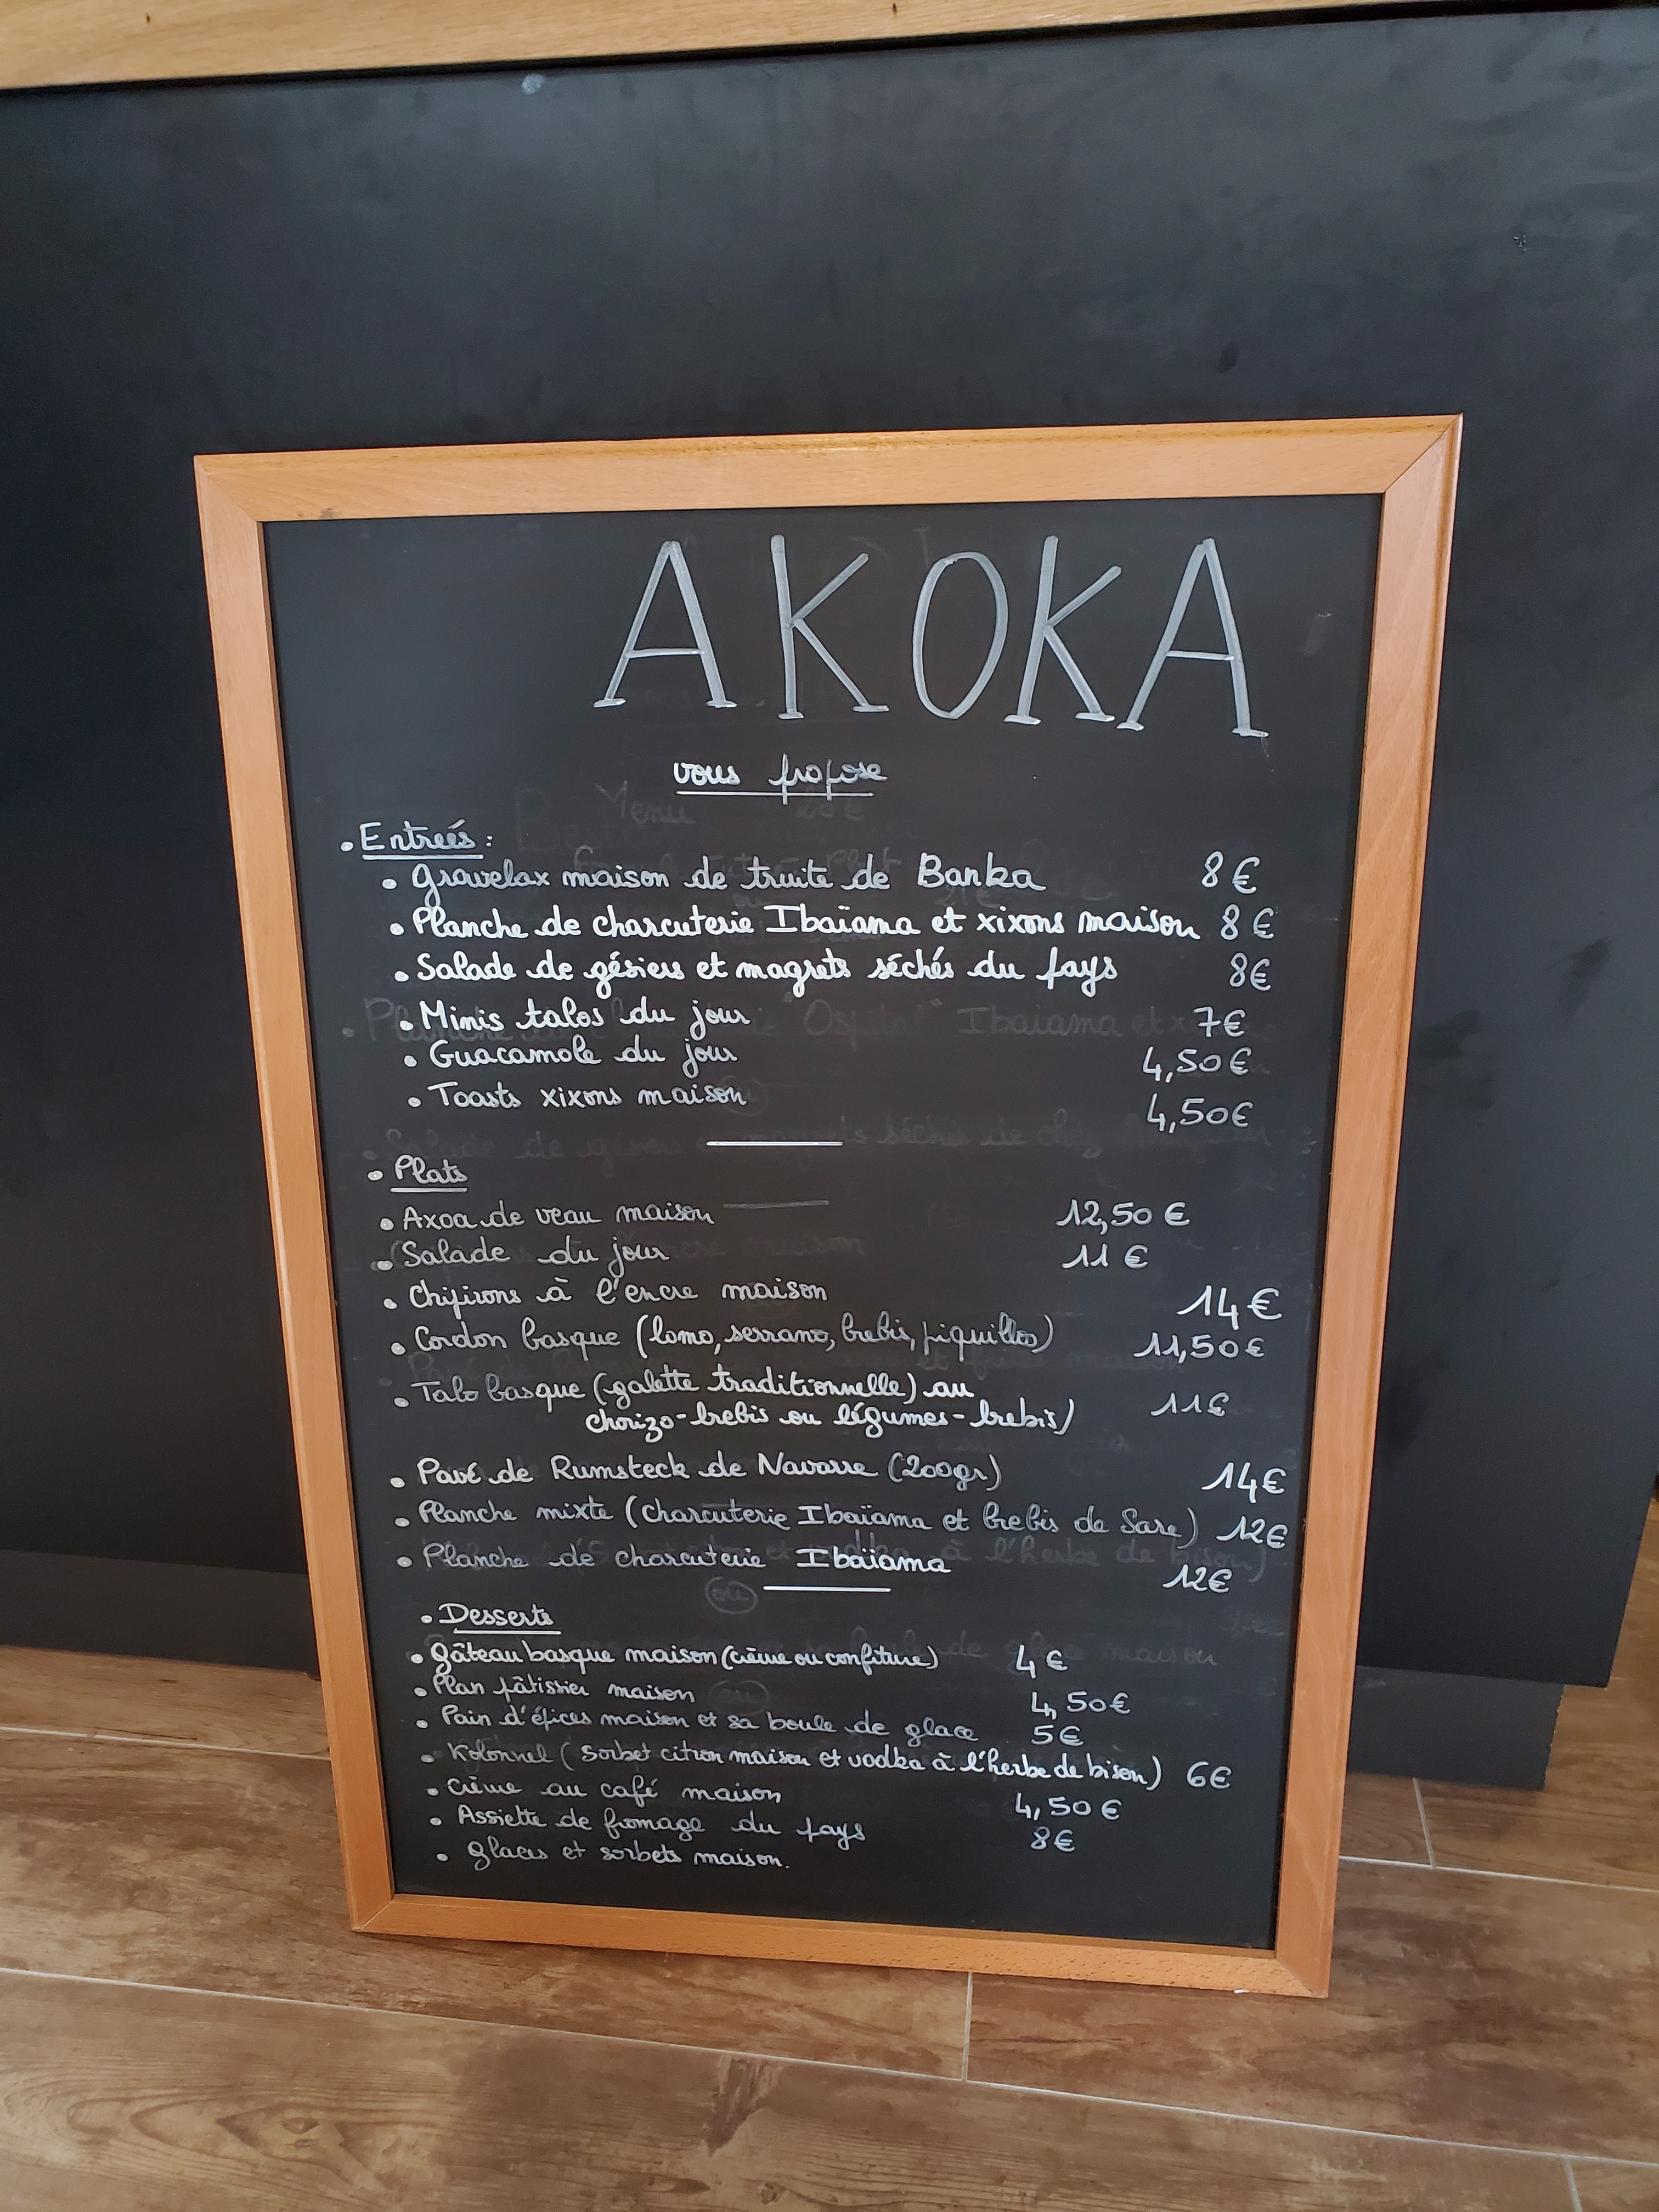 AKOKA
vous propose
• Entreés :
• Gravelax maison de truite de Banka 8€
• Planche de charcuterie Ibaïama et xixons maison 8€
• Salade de gésiers et magrets séchés du pays 8€
• Minis talos du jour 7€
• Guacamole du jour 4,50€
• Toasts xixons maison 4,50€
• Plats
• Axoa de veau maison 12,50€
• Salade du jour 11€
• Chipirons à l'encre maison 14€
• Cordon basque (lomo, serrano, brebis, piquillo) 11,50€
• Talo basque (galette traditionnelle) au 11€
chorizo-brebis ou légumes-brebis)
• Pavé de Rumsteck de Navarre (200gr) 14€
• Planche mixte (Charcuterie Ibaïama et brebis de Sare) 12€
• Planche de charcuterie Ibaïama 12€
• Desserts
• Gâteau basque maison (crème ou confiture) 4€
• Flan pâtissier maison 4,50€
• Pain d'épices maison et sa boule de glace 5€
• Kolonnel (Sorbet citron maison et vodka à l'herbe de bison) 6€
• Crème au café maison 4,50€
• Assiette de fromage du pays 8€
• Glaces et sorbets maison.